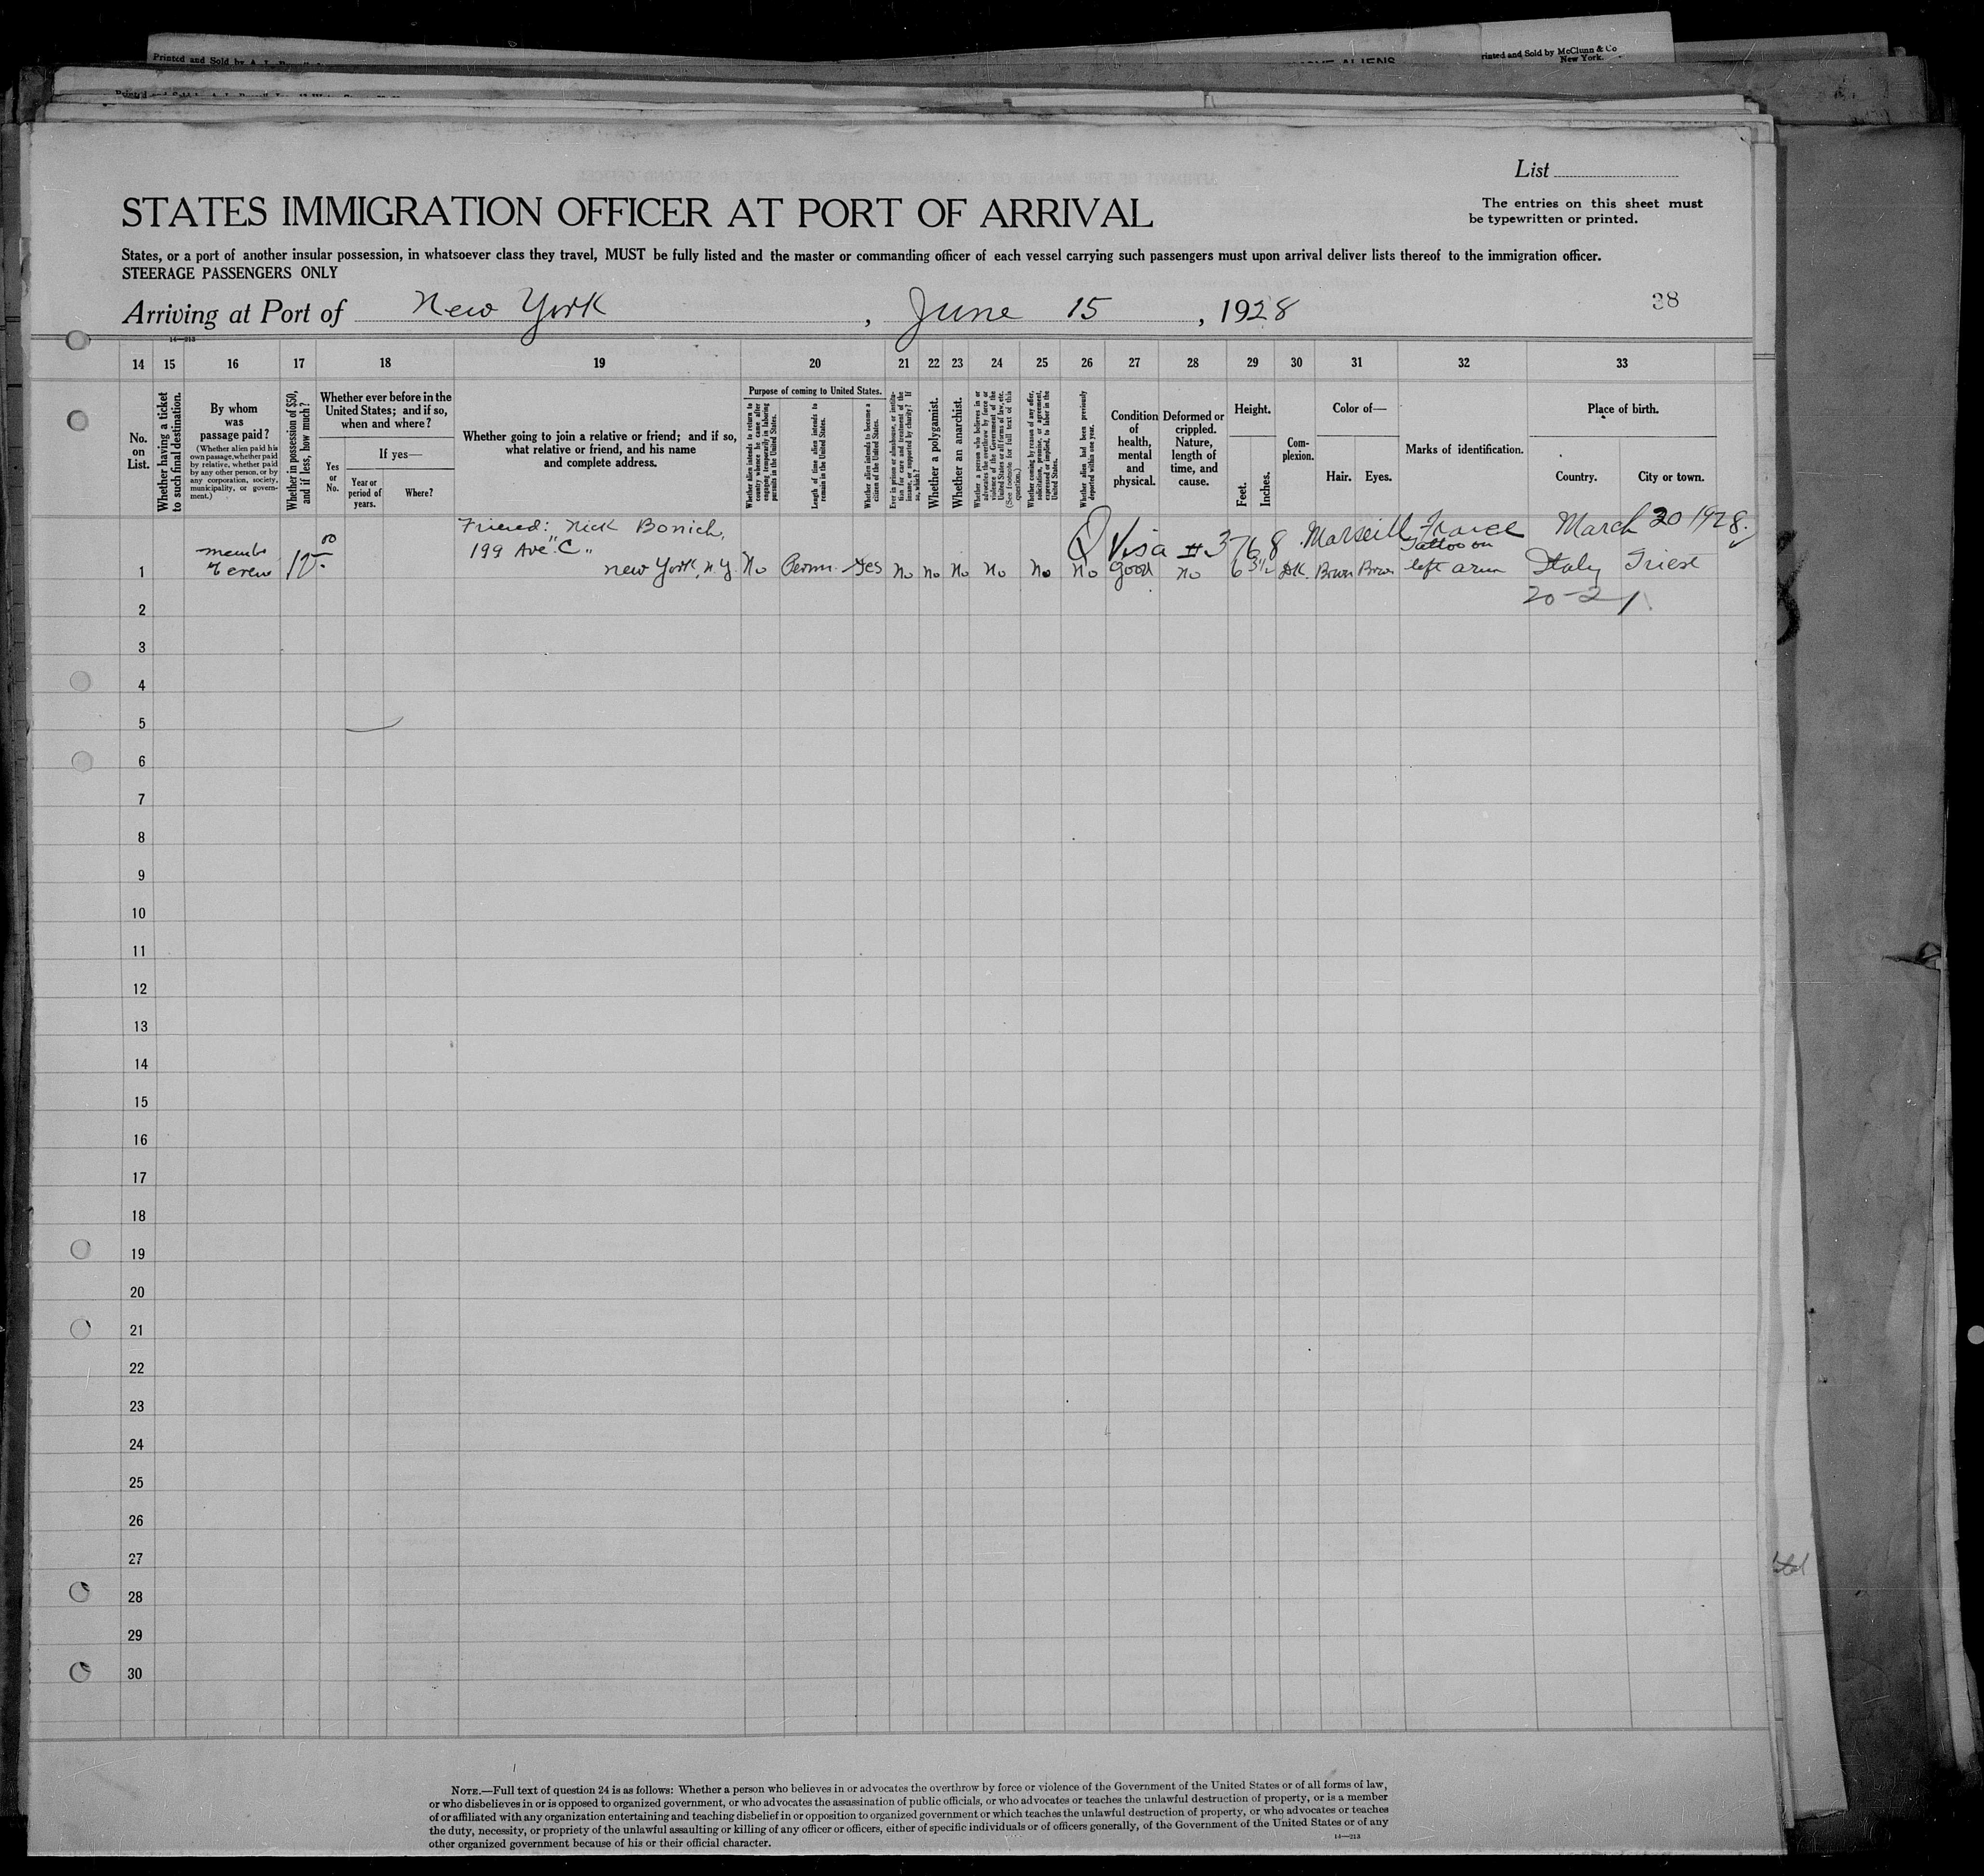 Printed and Sold by
rinted and Sold by McClunn & Co
New York.
List
STATES IMMIGRATION OFFICER AT PORT OF ARRIVAL
The entries on this sheet must
be typewritten or printed.
States, or a port of another insular possession, in whatsoever class they travel, MUST be fully listed and the master or commanding officer of each vessel carrying such passengers must upon arrival deliver lists thereof to the immigration officer.
STEERAGE PASSENGERS ONLY
Arriving at Port of New York, June 15, 1928
38
14—213
14 15 16 17 18 19 20 21 22 23 24 25 26 27 28 29 30 31 32 33
No. on List.
Whether having a ticket to such final destination.
By whom was passage paid?
(Whether alien paid his own passage, whether paid by relative, whether paid by any other person, or by any corporation, society, municipality, or government.)
Whether in possession of $50, and if less, how much?
Whether ever before in the United States; and if so, when and where?
Yes or No.
If yes—
Year or period of years.
Where?
Whether going to join a relative or friend; and if so, what relative or friend, and his name and complete address.
Purpose of coming to United States.
Whether alien intends to return to country whence he came after engaging temporarily in laboring pursuits in the United States.
Length of time alien intends to remain in the United States.
Whether alien intends to become a citizen of the United States.
Ever in prison or almshouse, or institution for care and treatment of the insane, or supported by charity? If so, which?
Whether a polygamist.
Whether an anarchist.
Whether a person who believes in or advocates the overthrow by force or violence of the Government of the United States or all forms of law, etc. (See footnote for full text of this question.)
Whether coming by reason of any offer, solicitation, promise, or agreement, expressed or implied, to labor in the United States.
Whether alien had been previously deported within one year.
Condition of health, mental and physical.
Deformed or crippled. Nature, length of time, and cause.
Height.
Feet.
Inches.
Complexion.
Color of—
Hair.
Eyes.
Marks of identification.
Place of birth.
Country.
City or town.
Friend: Nick Bonich, Q Visa # 3768 Marseill France March 20 1928.
199 Ave "C" Tattoo on
1 member crew New York, N.Y. No Perm. Yes No No No No No No Good No 6 3½ DK. Brown Brown left arm Italy Triest
2 20-21
3
4
5
6
7
8
9
10
11
12
13
14
15
16
17
18
19
20
21
22
23
24
25
26
27
28
29
30
NOTE.—Full text of question 24 is as follows: Whether a person who believes in or advocates the overthrow by force or violence of the Government of the United States or of all forms of law,
or who disbelieves in or is opposed to organized government, or who advocates the assassination of public officials, or who advocates or teaches the unlawful destruction of property, or is a member
of or affiliated with any organization entertaining and teaching disbelief in or opposition to organized government or which teaches the unlawful destruction of property, or who advocates or teaches
the duty, necessity, or propriety of the unlawful assaulting or killing of any officer or officers, either of specific individuals or of officers generally, of the Government of the United States or of any
other organized government because of his or their official character.
14—213